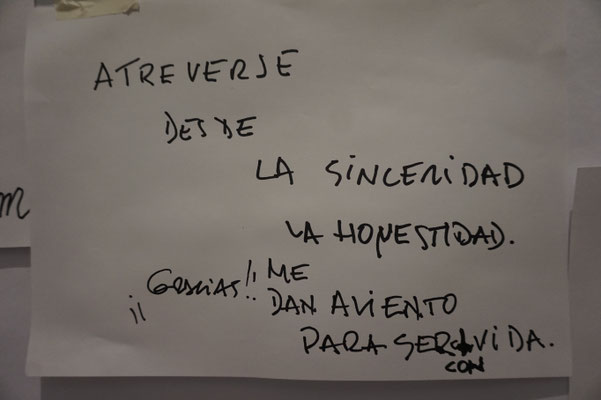 ATREVERSE
DESDE
LA SINCERIDAD
LA HONESTIDAD.
¡¡GRACIAS!! ME
DAN ALIENTO
PARA SER VIDA.
CON
m